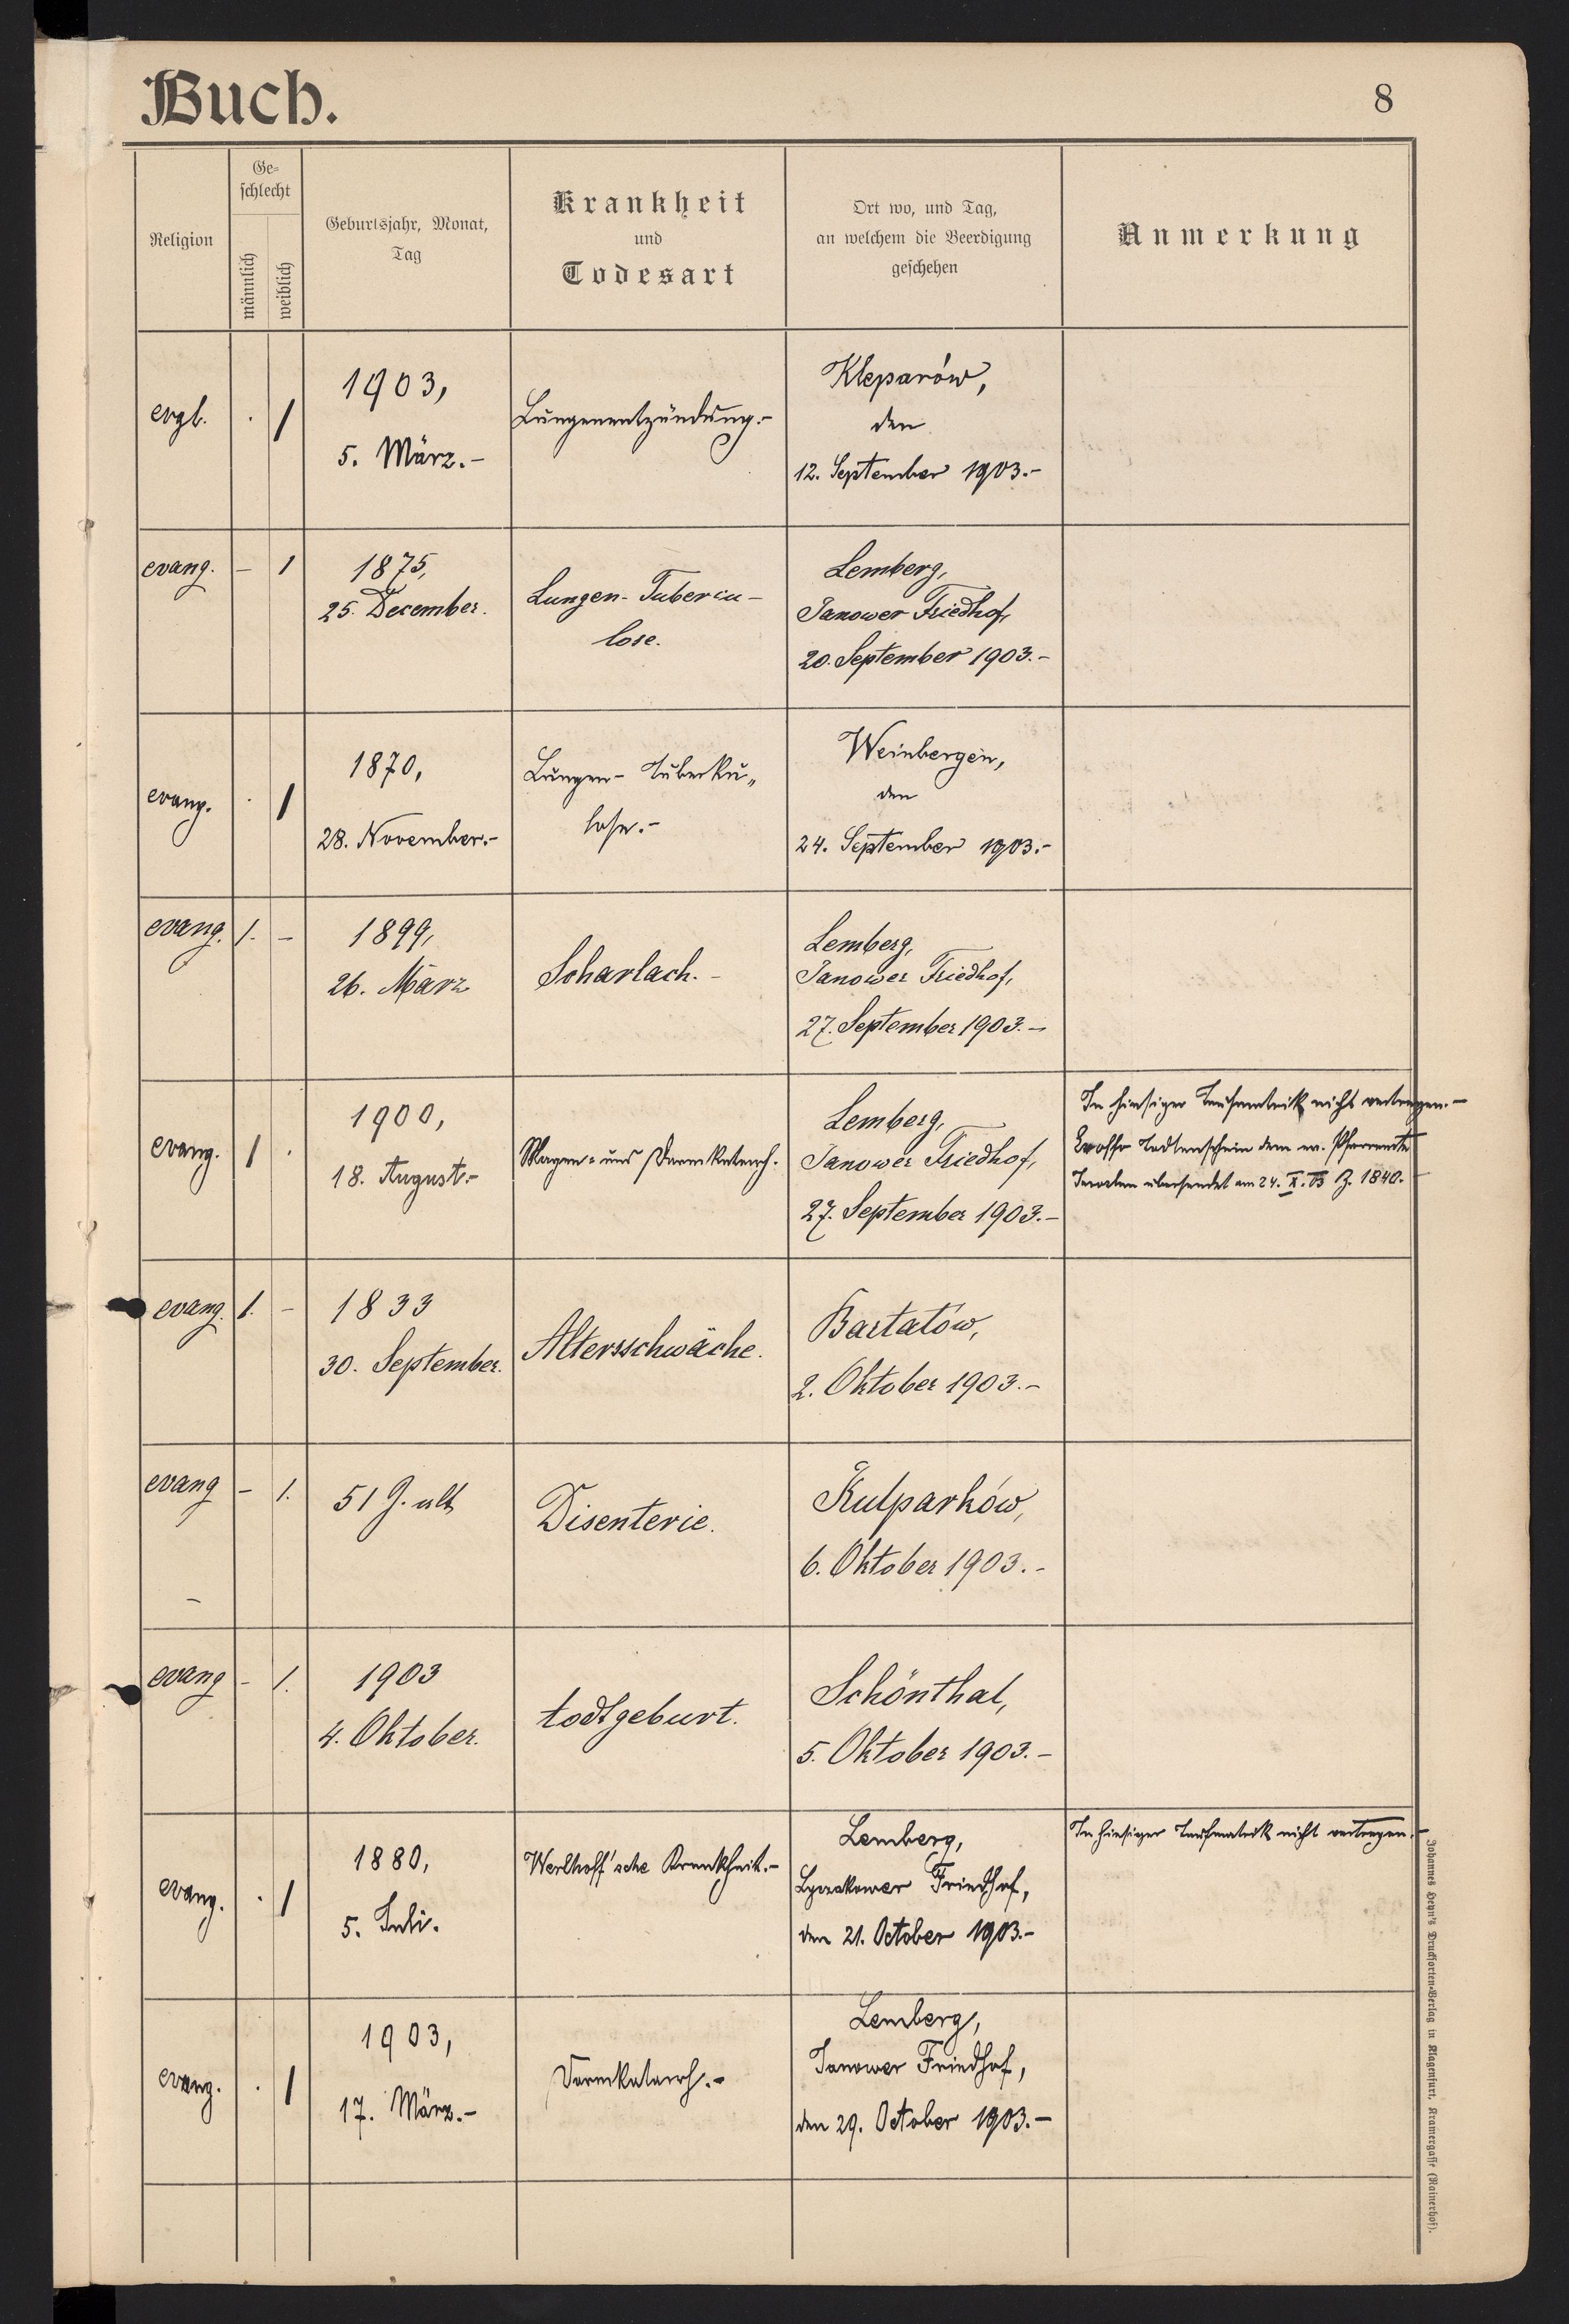 Buch.
8
Religion
Ge-
schlecht
männlich
weiblich
Geburtsjahr, Monat,
Tag
Krankheit
und
Todesart
Ort wo, und Tag,
an welchem die Beerdigung
geschehen
Anmerkung
evgl. . 1
1903,
5. März.-
Lungenentzündung.-
Kleparów,
den
12. September 1903.-
evang. - 1
1875,
25. December.
Lungen-Tubercu-
lose.
Lemberg,
Janower Friedhof,
20. September 1903.-
evang. . 1
1870,
28. November.-
Lungen-Tuberku„
lose.-
Weinbergen,
den
24. September 1903.-
evang. 1. -
1899,
26. März
Scharlach.-
Lemberg,
Janower Friedhof,
27. September 1903.-
evang. 1 .
1900,
18. August.-
Magen- und Darmkatarrh.
Lemberg,
Janower Friedhof,
27. September 1903.-
In hiesiger Taufmatrik nicht vertragen.-
Todtenschein dem ev. Pfarramte
übersendet am 24. X. 03 Z. 1840.-
evang. 1. -
1833
30. September.
Altersschwäche.
Bartatów,
2. Oktober 1903.-
evang - 1.
51 J. alt
Disenterie.
Kulparków,
6. Oktober 1903.-
evang - 1.
1903
4. Oktober.
todtgeburt.
Schönthal,
5. Oktober 1903.-
evang. . 1
1880,
5. Juli.
Werlhoff'sche Krankheit.-
Lemberg,
Lyczakower Friedhof,
den 21. October 1903.-
In hiesiger Taufmatrik nicht vertragen.-
evang. . 1
1903,
17. März.-
Darmkatarrh.-
Lemberg,
Janower Friedhof,
den 29. October 1903.-
Johannes Heyn's Drucksorten-Verlag in Klagenfurt, Kramergasse (Rainerhof).